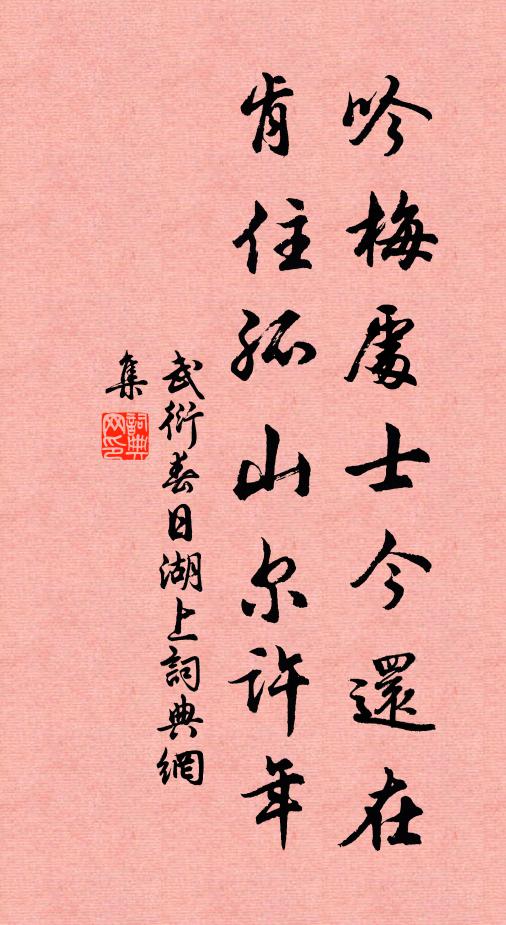 吟梅處士今還在
肯住孤山尔許年
武衍春日湖上詞典網
集
詞典網印